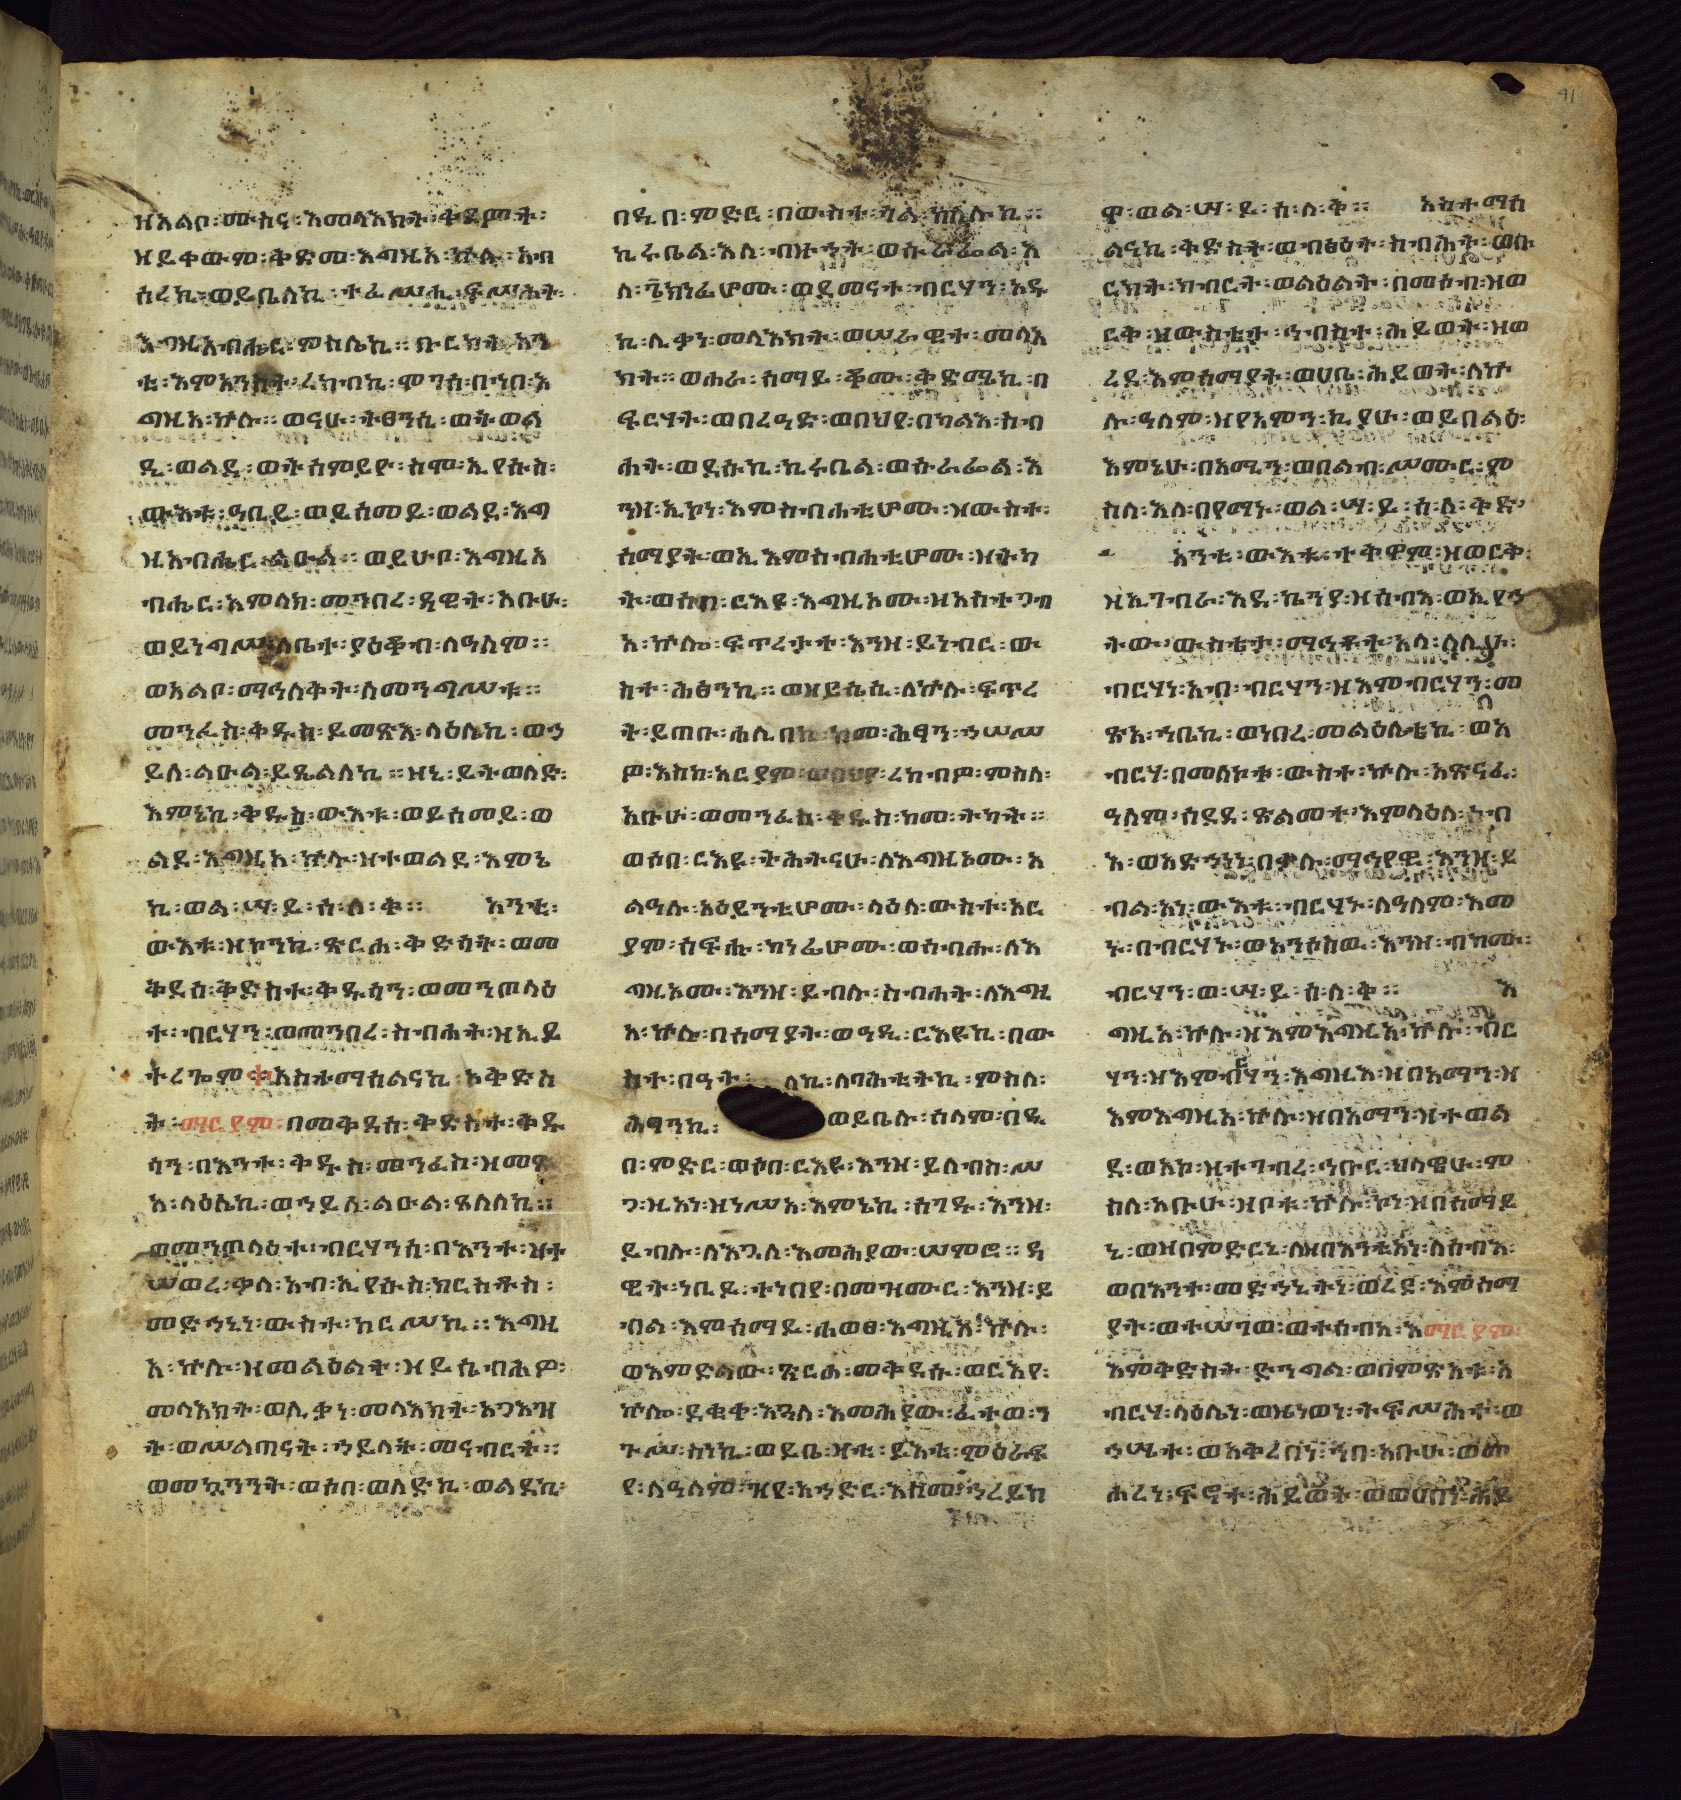 41
ዘአልቦ፡ሙስና፡እመላእክት፡ቀደምት፡
ዘይቀውም፡ቅድመ፡እግዚአ፡ኵሉ፡አብ
ሰረኪ፡ወይቤለኪ፡ተፈሥሒ፡ፍሥሕት፡
እግዚአብሔር፡ምስሌኪ፡፡ቡርክት፡አን
ቲ፡እምአንስት፡ረከብኪ፡ሞገሰ፡በኀበ፡እ
ግዚአ፡ኵሉ፡፡ወናሁ፡ትፀንሲ፡ወትወል
ዲ፡ወልደ፡ወትሰምይዮ፡ስሞ፡ኢየሱስ፡
ውእቱ፡ዓቢይ፡ወይሰመይ፡ወልደ፡እግ
ዚአብሔር፡ልዑል፡፡ወይሁቦ፡እግዚአ
ብሔር፡አምላክ፡መንበረ፡ዳዊት፡አቡሁ፡
ወይነግሥ፡ለቤተ፡ያዕቆብ፡ለዓለም፡፡
ወአልቦ፡ማኅለቅት፡ለመንግሥቱ፡፡
መንፈስ፡ቅዱስ፡ይመጽእ፡ላዕሌኪ፡ወኀ
ይለ፡ልዑል፡ይጼልለኪ፡፡ዘኒ፡ይትወለድ፡
እምኔኪ፡ቅዱስ፡ውእቱ፡ወይሰመይ፡ወ
ልደ፡እግዚአ፡ኵሉ፡ዘተወልደ፡እምኔ
ኪ፡ወል፡ሣ፡ይ፡ስ፡ለ፡ቅ፡፡ አንቲ፡
ውእቱ፡ዘኮንኪ፡ጽርሐ፡ቅድሳት፡ወመ
ቅደሰ፡ቅድስተ፡ቅዱሳን፡ወመንጦላዕ
ተ፡ብርሃን፡ወመንበረ፡ስብሐት፡ዘኢይ
ትረጐም፡አስተማሰልናኪ፡አቅድስ
ት፡ማርያም፡በመቅደሰ፡ቅድስተ፡ቅዱ
ሳን፡በእንተ፡ቅዱስ፡መንፈስ፡ዘመጽ
አ፡ላዕሌኪ፡ወኀይለ፡ልዑል፡ጸለለኪ፡፡
ወመንጦላዕተ፡ብርሃንሰ፡በእንተ፡ዘተ
ሠወረ፡ቃለ፡አብ፡ኢየሱስ፡ክርስቶስ፡
መድኀኒነ፡ውስተ፡ከርሥኪ፡፡እግዚ
አ፡ኵሉ፡ዘመልዕልት፡ዘይሴብሕዎ፡
መላእክት፡ወሊቃነ፡መላእክት፡አጋእዝ
ት፡ወሥልጣናት፡ኀይላት፡መናብርት፡፡
ወመኳንንት፡ወሰበ፡ወለድኪ፡ወልደኪ፡
በዲበ፡ምድር፡በውስተ፡ጎል፡ከለሉኪ፡፡
ኪሩቤል፡እለ፡ብዙኃት፡ወሱራፌል፡እ
ለ፡፮ክነፊሆሙ፡ወደመናተ፡ብርሃን፡አዱ
ኪ፡ሊቃነ፡መላእክት፡ወሠራዊተ፡መላእ
ክት፡፡ወሐራ፡ሰማይ፡ቆሙ፡ቅድሜኪ፡በ
ፍርሃት፡ወበረዓድ፡ወበህየ፡በካልእ፡ስብ
ሐት፡ወደሱኪ፡ኪሩቤል፡ወሱራፌል፡እ
ንዘ፡ኢኮነ፡እምስብሐቲሆሙ፡ዘውስተ፡
ሰማያት፡ወኢእምስብሐቲሆሙ፡ዘትካ
ት፡ወሰበ፡ርእዩ፡እግዚኦሙ፡ዘአስተጋብ
አ፡ኵሎ፡ፍጥረታተ፡እንዘ፡ይነብር፡ው
ስተ፡ሕፅንኪ፡፡ወዘይሴሲ፡ለኵሉ፡ፍጥረ
ት፡ይጠቡ፡ሐሊበኪ፡ከመ፡ሕፃን፡ኀሠሠ
ዎ፡እስከ፡አርያም፡ወበህየ፡ረከብዎ፡ምስለ፡
አቡሁ፡ወመንፈስ፡ቅዱስ፡ከመ፡ትካት፡፡
ወሰበ፡ርእዩ፡ትሕትናሁ፡ለእግዚኦሙ፡አ
ልዓሉ፡አዕይንቲሆሙ፡ላዕለ፡ውስተ፡አር
ያም፡ሰፍሑ፡ክነፊሆሙ፡ወሰብሑ፡ለእ
ግዚኦሙ፡እንዘ፡ይብሉ፡ስብሐት፡ለእግዚ
አ፡ኵሉ፡በሰማያት፡ወዓዲ፡ርእዩኪ፡በው
ስተ፡በዓት፡ ለኪ፡ለባሕቲትኪ፡ምስለ፡
ሕፃንኪ፡ ወይቤሉ፡ሰላም፡በዲ
በ፡ምድር፡ወሶበ፡ርእዩ፡እንዘ፡ይለብስ፡ሥ
ጋ፡ዚአነ፡ዘነሥአ፡እምኔኪ፡ሰገዱ፡እንዘ፡
ይብሉ፡ለእጓለ፡እመሕያው፡ሠምሮ፡፡ዳ
ዊት፡ነቢይ፡ተነበየ፡በመዝሙር፡እንዘ፡ይ
ብል፡እምሰማይ፡ሐወፀ፡እግዚአ፡ኵሉ፡
ወእምድልው፡ጽርሐ፡መቅደሱ፡ወርእየ፡
ኵሎ፡ደቂቀ፡እጓለ፡እመሕያው፡ፈተወ፡ን
ጉሥ፡ስነኪ፡ወይቤ፡ዛቲ፡ይእቲ፡ምዕራፍ
የ፡ለዓለም፡ዝየ፡አኀድር፡እስመ፡ኀረይክ
ዋ፡ወል፡ሣ፡ይ፡ስ፡ለ፡ቅ፡፡ አስተማሰ
ልናኪ፡ቅድስት፡ወብፅዕት፡ስብሕት፡ወቡ
ርክት፡ክብርት፡ወልዕልት፡በመሶብ፡ዘወ
ርቅ፡ዘውስቴታ፡ኅብስተ፡ሕይወት፡ዘወ
ረደ፡እምሰማያት፡ወሀቤ፡ሕይወት፡ለኵ
ሉ፡ዓለም፡ዘየአምን፡ኪያሁ፡ወይበልዕ፡
እምኔሁ፡በአሚን፡ወበልብ፡ሥሙር፡ም
ስለ፡እለ፡በየማኑ፡ወል፡ሣ፡ይ፡ስ፡ለ፡ቅድ
አንቲ፡ውእቱ፡ተቅዋም፡ዘወርቅ፡
ዘኢገብራ፡እደ፡ኬንያ፡ዘሰብእ፡ወኢያኀ
ትው፡ውስቴታ፡ማኅቶተ፡አላ፡ለሊሁ፡
ብርሃነ፡አብ፡ብርሃን፡ዘእምብርሃን፡መ
ጽአ፡ኀቤኪ፡ወነበረ፡መልዕልቴኪ፡ወአ
ብርሃ፡በመለኮቱ፡ውስተ፡ኵሉ፡አጽናፈ፡
ዓለም፡ሰደደ፡ጽልመተ፡እምላዕለ፡ሰብ
እ፡ወአድኀነነ፡በቃሉ፡ማኅየዊ፡እንዘ፡ይ
ብል፡አነ፡ውእቱ፡ብርሃኑ፡ለዓለም፡እመ
ኑ፡በብርሃኑ፡ወአንሶስዉ፡እንዘ፡ብክሙ፡
ብርሃን፡ወ፡ሣ፡ይ፡ስ፡ለ፡ቅ፡፡ እ
ግዚአ፡ኵሉ፡ዘእምእግዚአ፡ኵሉ፡ብር
ሃን፡ዘእምብርሃን፡እግዚአ፡ዘበአማን፡ዘ
እምእግዚአ፡ኵሉ፡ዘበአማን፡ዘተወል
ደ፡ወአኮ፡ዘተገብረ፡ኅቡር፡ህላዌሁ፡ም
ስለ፡አቡሁ፡ዘቦቱ፡ኵሉ፡ኮነ፡ዘበሰማይ
ኒ፡ወዘበምድርኒ፡ለዘበእንቲአነ፡ለሰብእ፡
ወበእንተ፡መድኀኒትነ፡ወረደ፡እምሰማ
ያት፡ወተሠገወ፡ወተሰብአ፡እማርያም፡
እምቅድስት፡ድንግል፡ወበምጽአቱ፡አ
ብርሃ፡ላዕሌነ፡ወዜነወነ፡ትፍሥሕተ፡ወ
ኀሤተ፡ወአቅረበነ፡ኀበ፡አቡሁ፡ወመ
ሐረነ፡ፍኖተ፡ሕይወት፡ወወሀበነ፡ሕይ